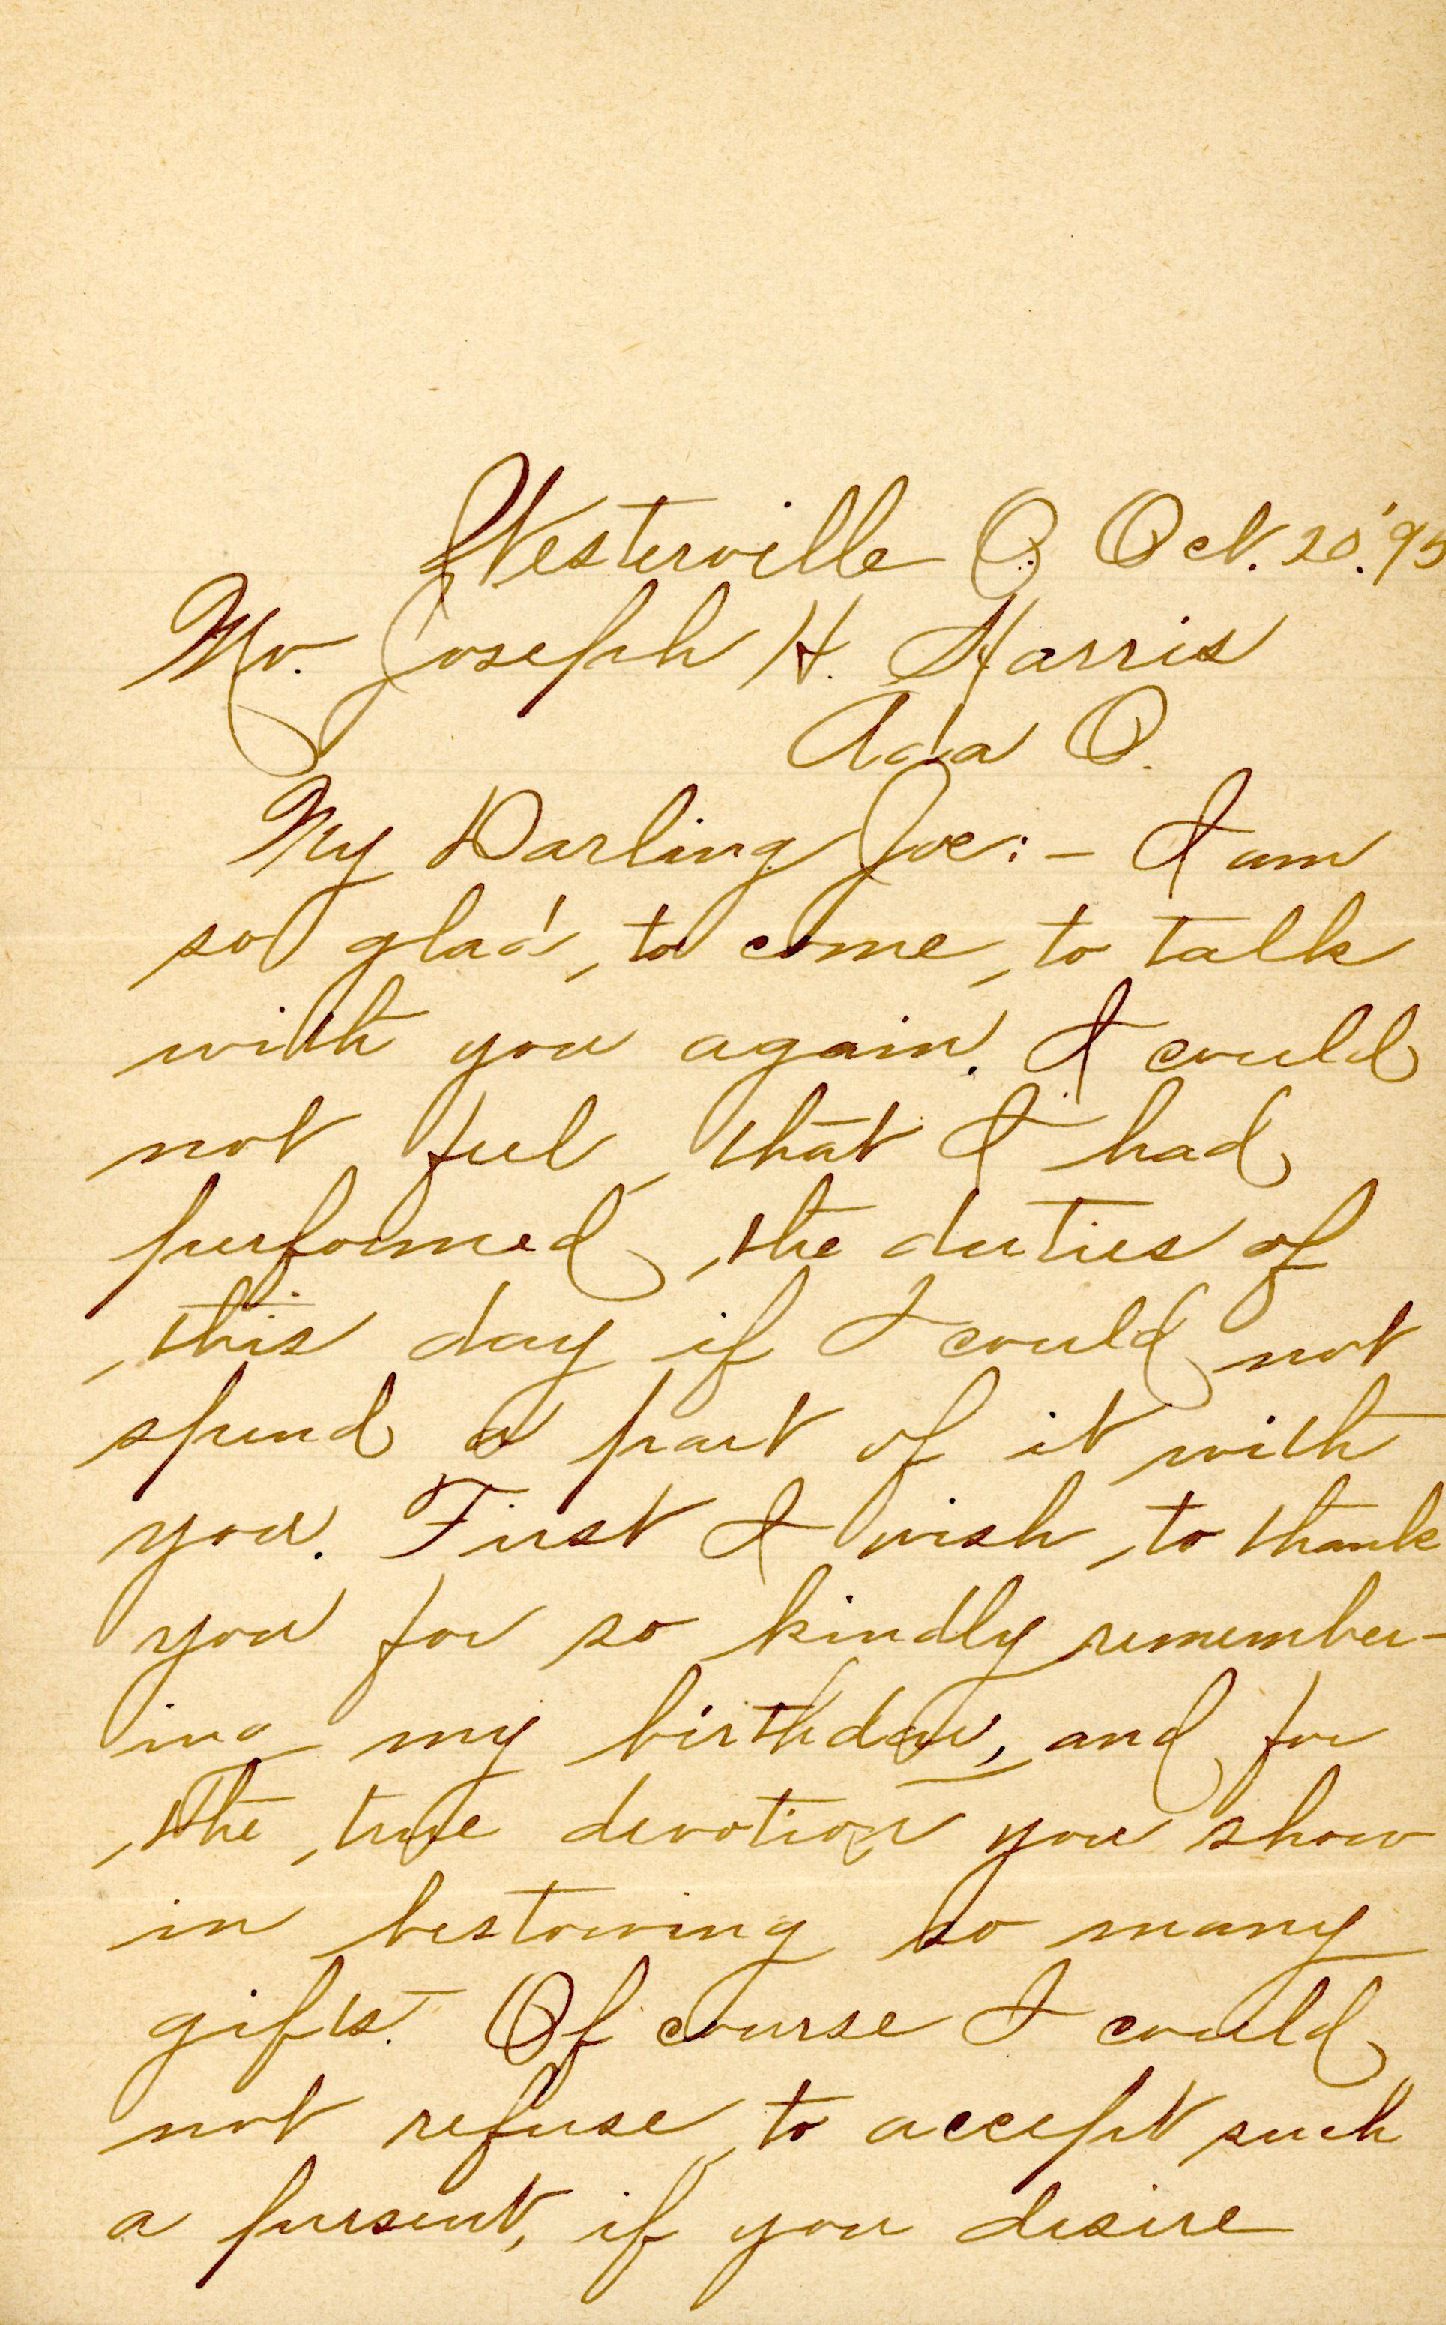 Westerville O. Oct. 20. '95
Mr. Joseph H. Harris
Ada O.
My Darling Joe: - I am
so glad, to come, to talk
with you again. I could
not feel that I had
performed the duties of
this day if I could not
spend a part of it with
you. First I wish to thank
you for so kindly remember-
ing my birthday, and for
the true devotion you show
in bestowing so many
gifts. Of course I could
not refuse to accept such
a present, if you desire